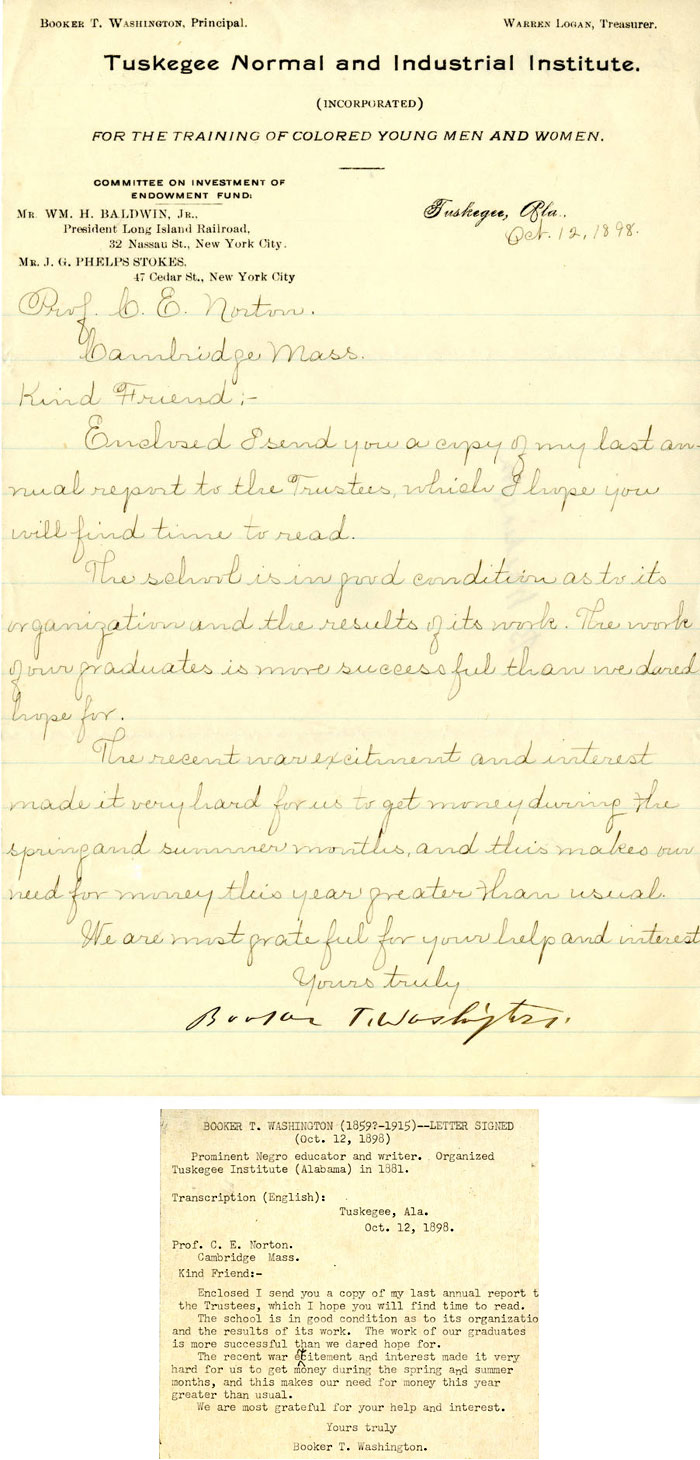 BOOKER T. WASHINGTON, Principal. WARREN LOGAN, Treasurer.
Tuskegee Normal and Industrial Institute.
(INCORPORATED)
FOR THE TRAINING OF COLORED YOUNG MEN AND WOMEN.
COMMITTEE ON INVESTMENT OF
ENDOWMENT FUND:
MR. WM. H. BALDWIN, JR.,
President Long Island Railroad,
32 Nassau St., New York City.
MR. J. G. PHELPS STOKES.
47 Cedar St., New York City
Tuskegee, Ala.,
Oct. 12, 1898.
Prof. C. E. Norton.
Cambridge Mass.
Kind Friend:-
Enclosed I send you a copy of my last an-
nual report to the Trustees, which I hope you
will find time to read.
The school is in good condition as to its
organization and the results of its work. The work
of our graduates is more successful than we dared
hope for.
The recent war excitment and interest
made it very hard for us to get money during the
spring and summer months, and this makes our
need for money this year greater than usual.
We are most grateful for your help and interest
Yours truly
Booker T. Washington.
BOOKER T. WASHINGTON (1859?-1915)--LETTER SIGNED
(Oct. 12, 1898)
Prominent Negro educator and writer. Organized
Tuskegee Institute (Alabama) in 1881.
Transcription (English):
Tuskegee, Ala.
Oct. 12, 1898.
Prof. C. E. Norton.
Cambridge Mass.
Kind Friend:-
Enclosed I send you a copy of my last annual report t
the Trustees, which I hope you will find time to read.
The school is in good condition as to its organizatio
and the results of its work. The work of our graduates
is more successful than we dared hope for.
The recent war excitement and interest made it very
hard for us to get money during the spring and summer
months, and this makes our need for money this year
greater than usual.
We are most grateful for your help and interest.
Yours truly
Booker T. Washington.